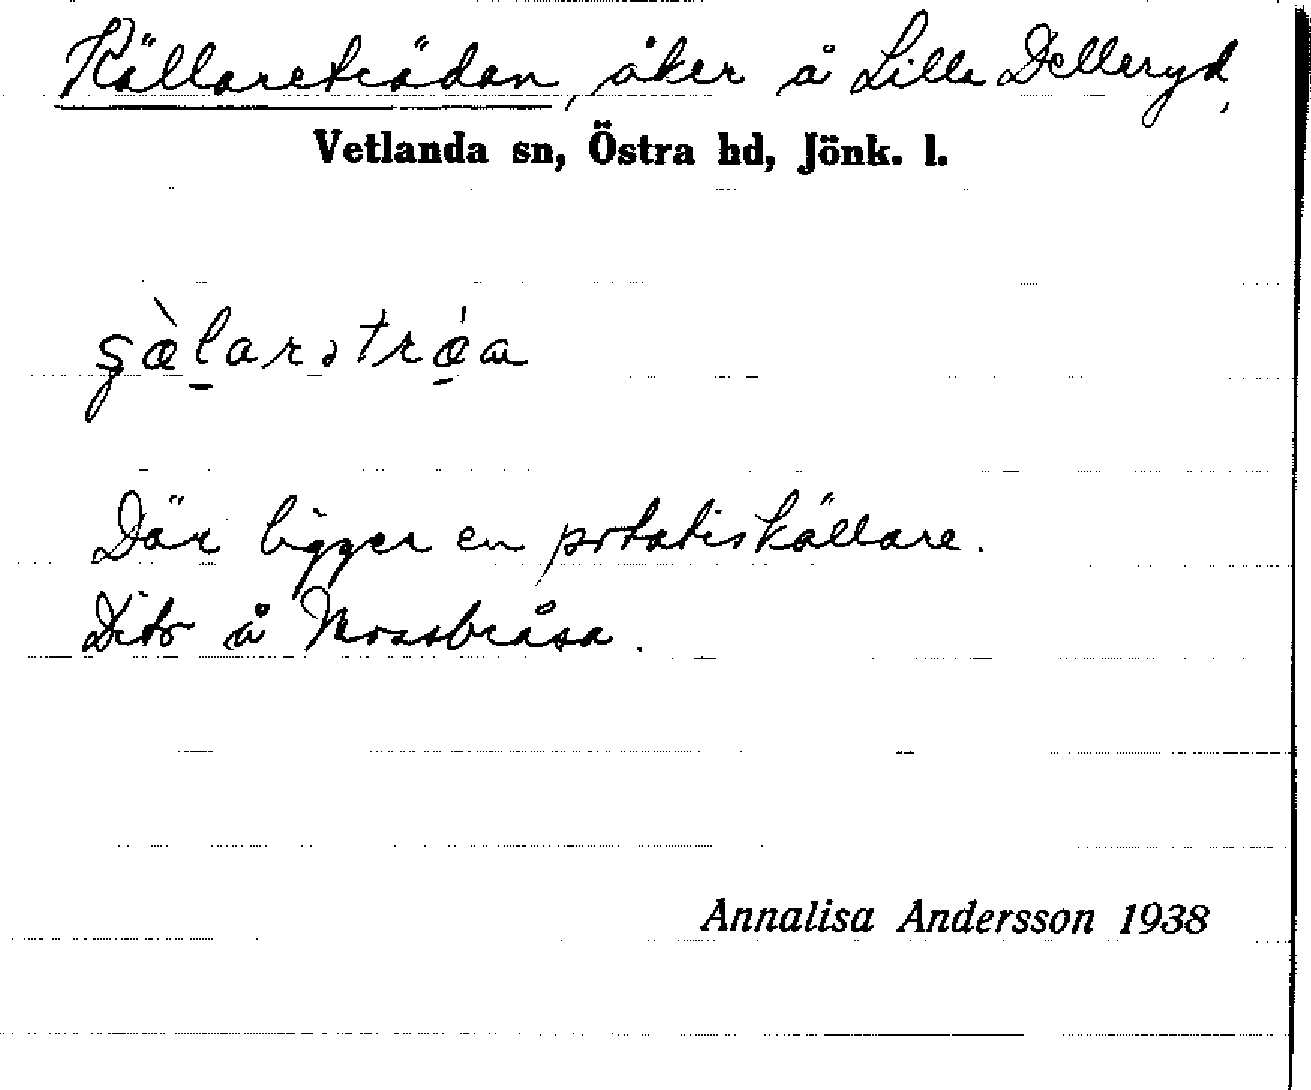 Källareträdan, åker å Lilla Delleryd,
Vetlanda sn, Östra hd, Jönk. l.
Där ligger en potatiskällare.
Dito å Mossbråsa.
Annalisa Andersson 1938